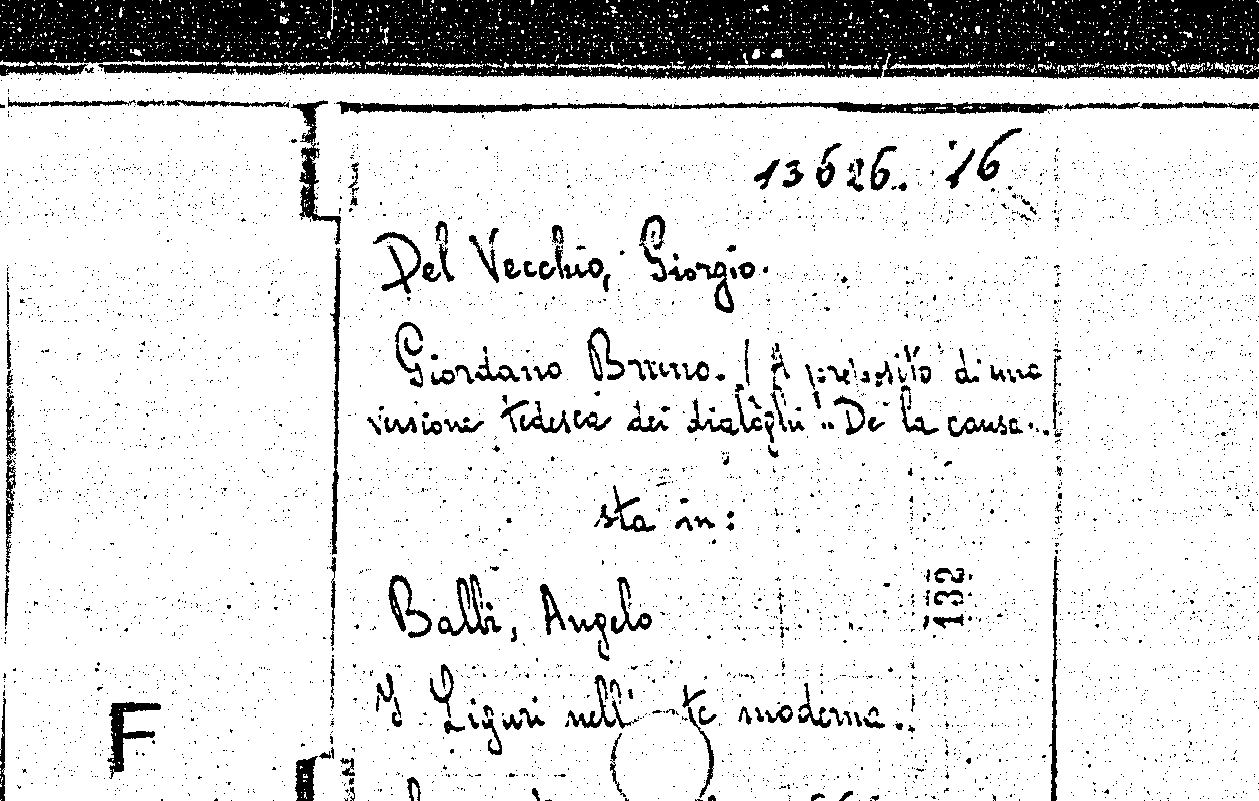 13626. 16
Del Vecchio, Giorgio.
Giordano Bruno. (A proposito di una
versione tedesca dei dialoghi "De la causa..
sta in:
132
Balbi, Angelo
I Liguri nell' te moderna.
F